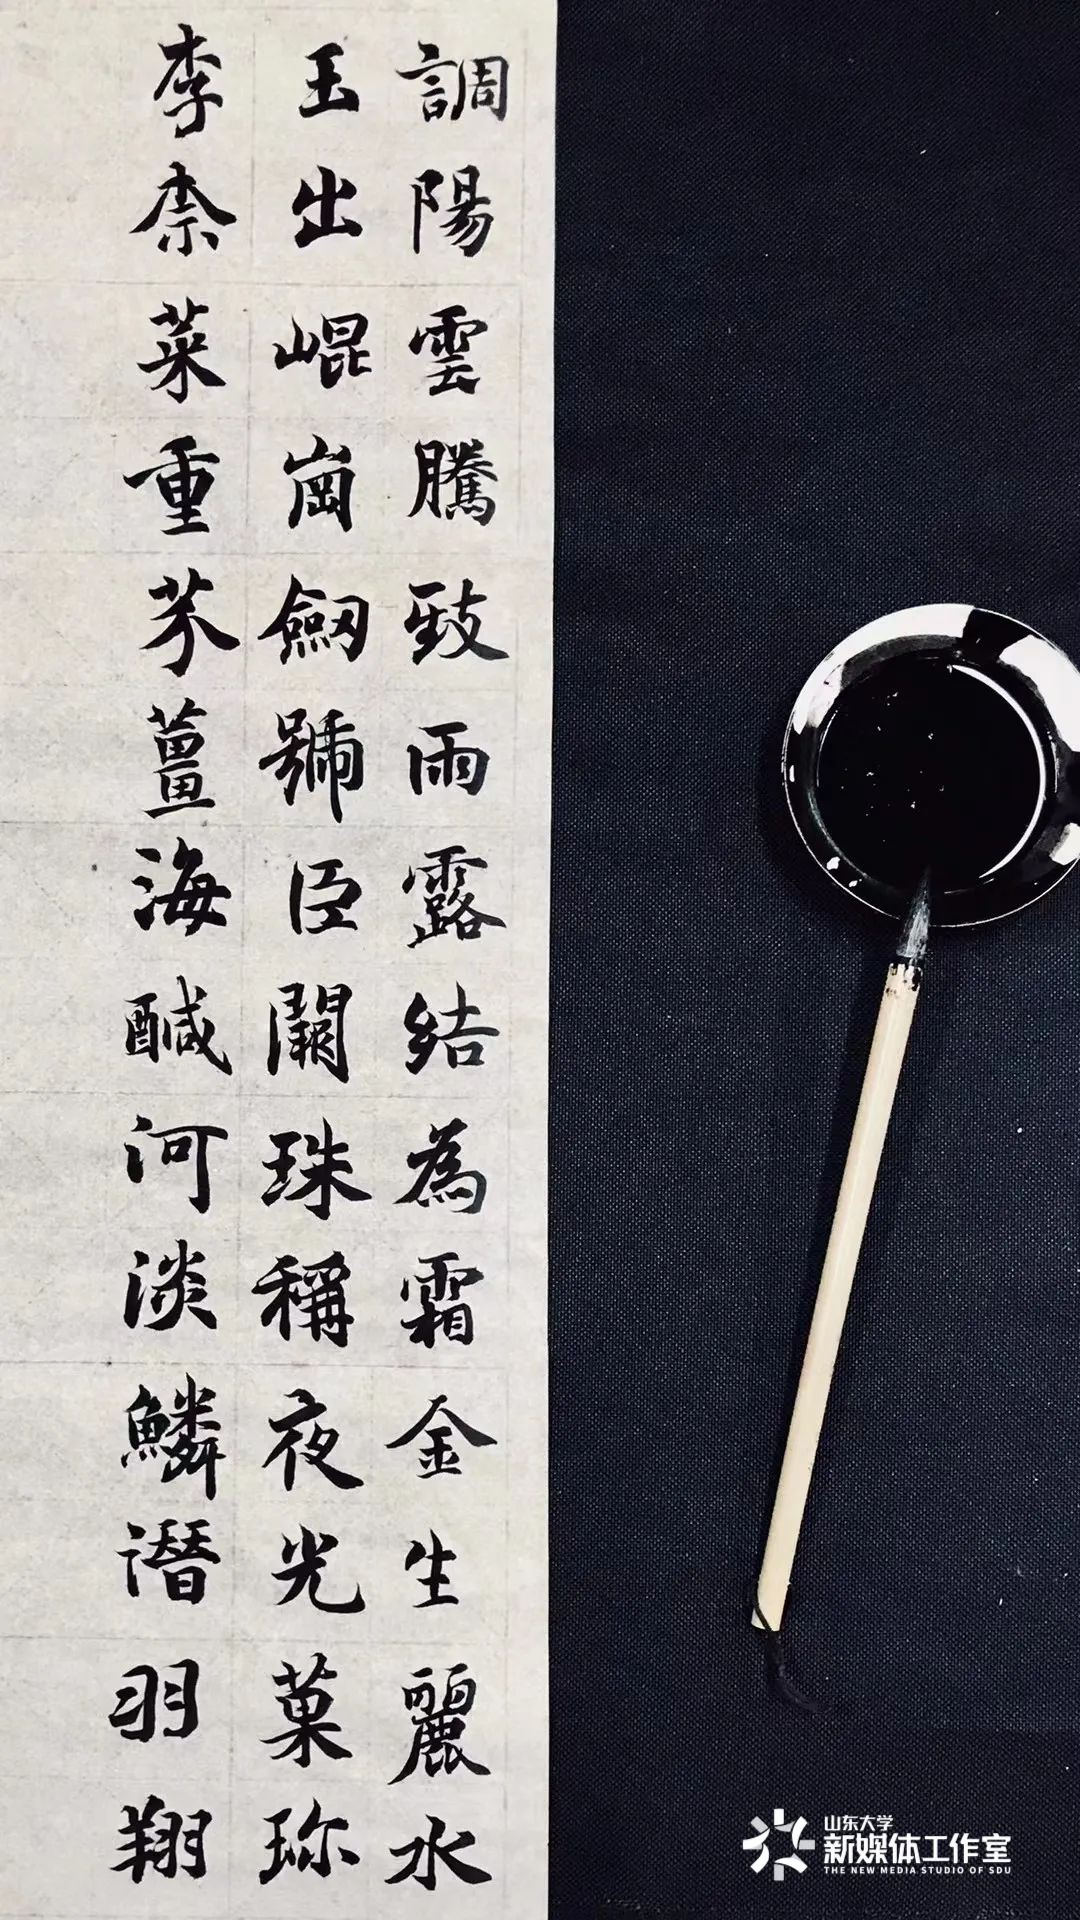 調陽雲騰致雨露結為霜金生麗水
玉出崐崗劒號臣闕珠稱夜光菓珎
李柰菜重芥薑海鹹河淡鱗潛羽翔
山东大学
新媒体工作室
THE NEW MEDIA STUDIO OF SDU